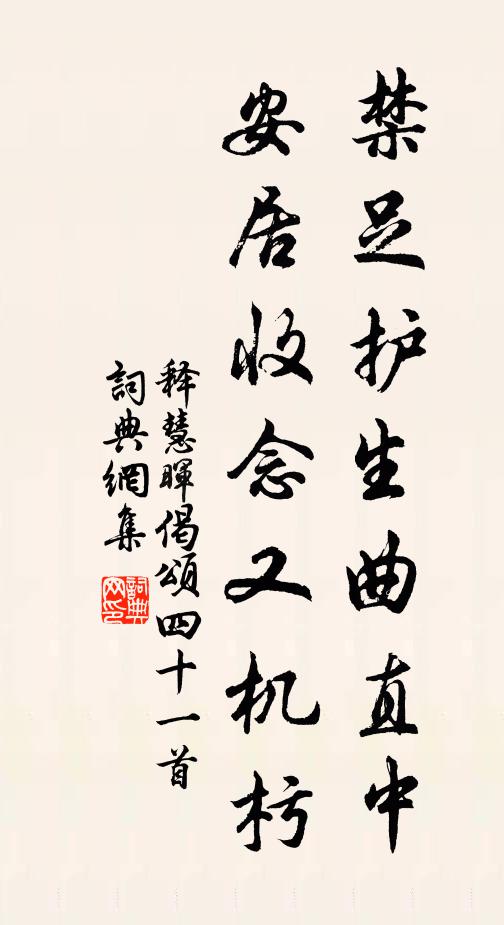 禁足护生曲直中
安居收念又机杇
释慧暉偈頌四十一首
詞典網集
詞典网印